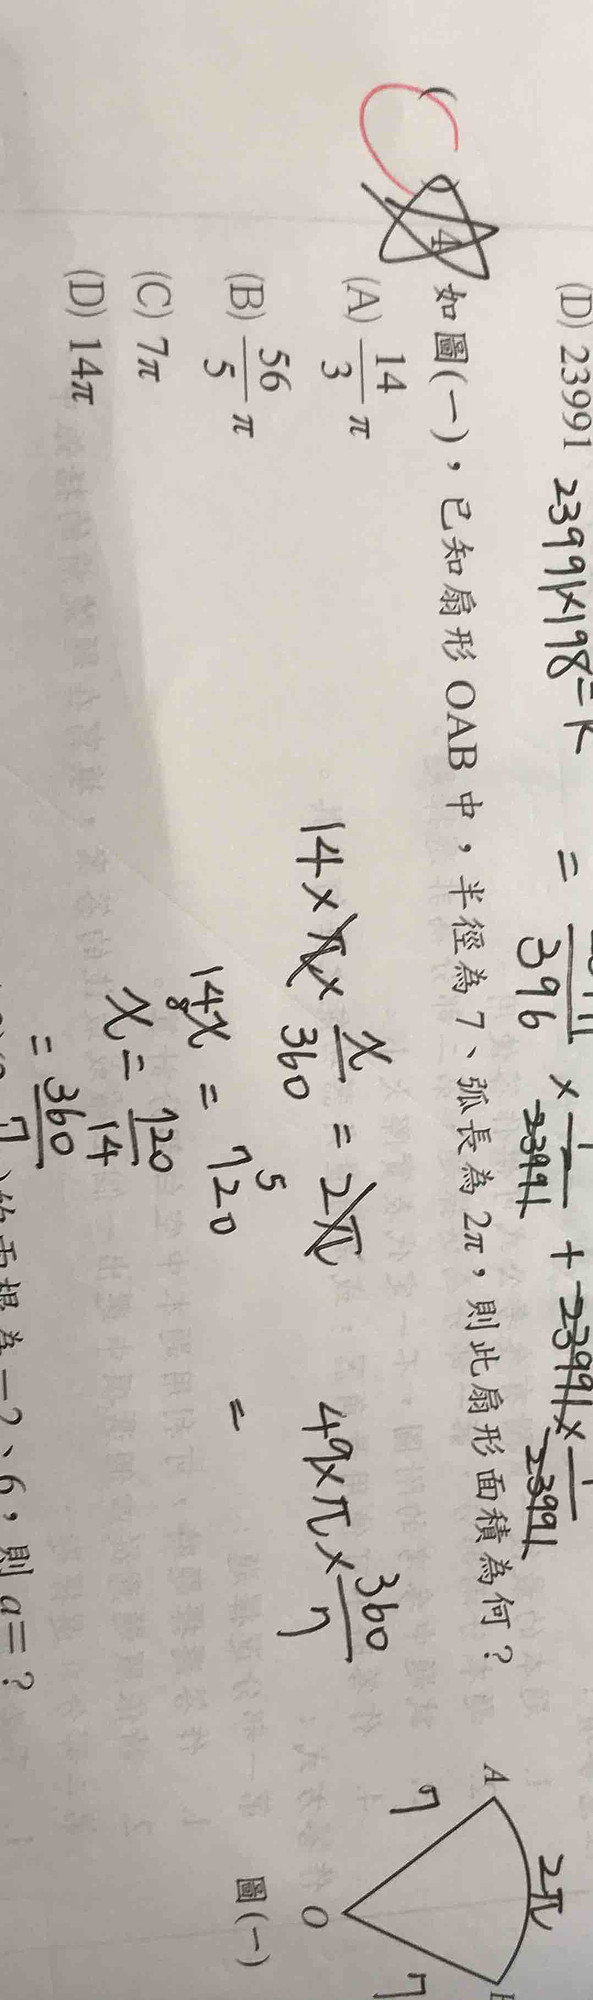 (D) 23991 23991×198=k
= 396 × 1/23991 + 23991 × 1/23991
( ) 4. 如圖(一)，已知扇形 OAB 中，半徑為 7、弧長為 2π，則此扇形面積為何？
(A) 14/3 π
(B) 56/5 π
(C) 7π
(D) 14π
14×π× x/360 = 2π
14x = 720
x = 720/14
= 360/7
49×π× 360/7
=
A
2π
7
O
7
圖(一)
的兩根為−2、6，則 a=？